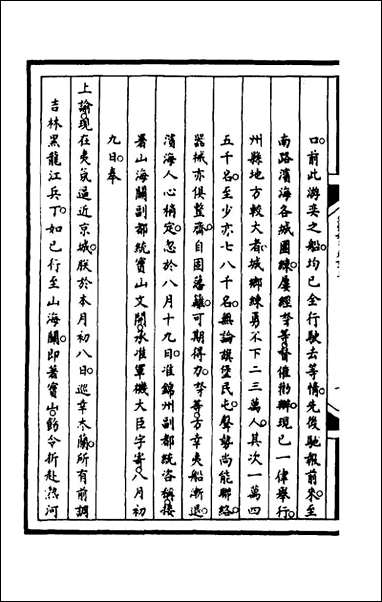 口。前此游奕之船。均已全行駛去等情。先後馳報前來。至
南路濱海各城團練。屢經奴才等督催。現已一律舉行。
州縣地方較大者。城鄉練勇不下二三萬人。其次一萬四
五千名。至少亦七八千名。無論旗堡民屯。聲勢尚能聯絡。
器械亦俱整齊。自固藩籬。可期得力。奴才等方幸夷船漸退。
濱海人心稍定。忽於八月十九日。准錦州副都統咨稱。接
署山海關副都統寶山文開。承准軍機大臣字寄。八月初
九日。奉
上諭。現在夷氛逼近京城。朕於本月初八日。巡幸木蘭。所有前調
吉林黑龍江兵丁。如已行至山海關。即著寶山飭令折赴熱河